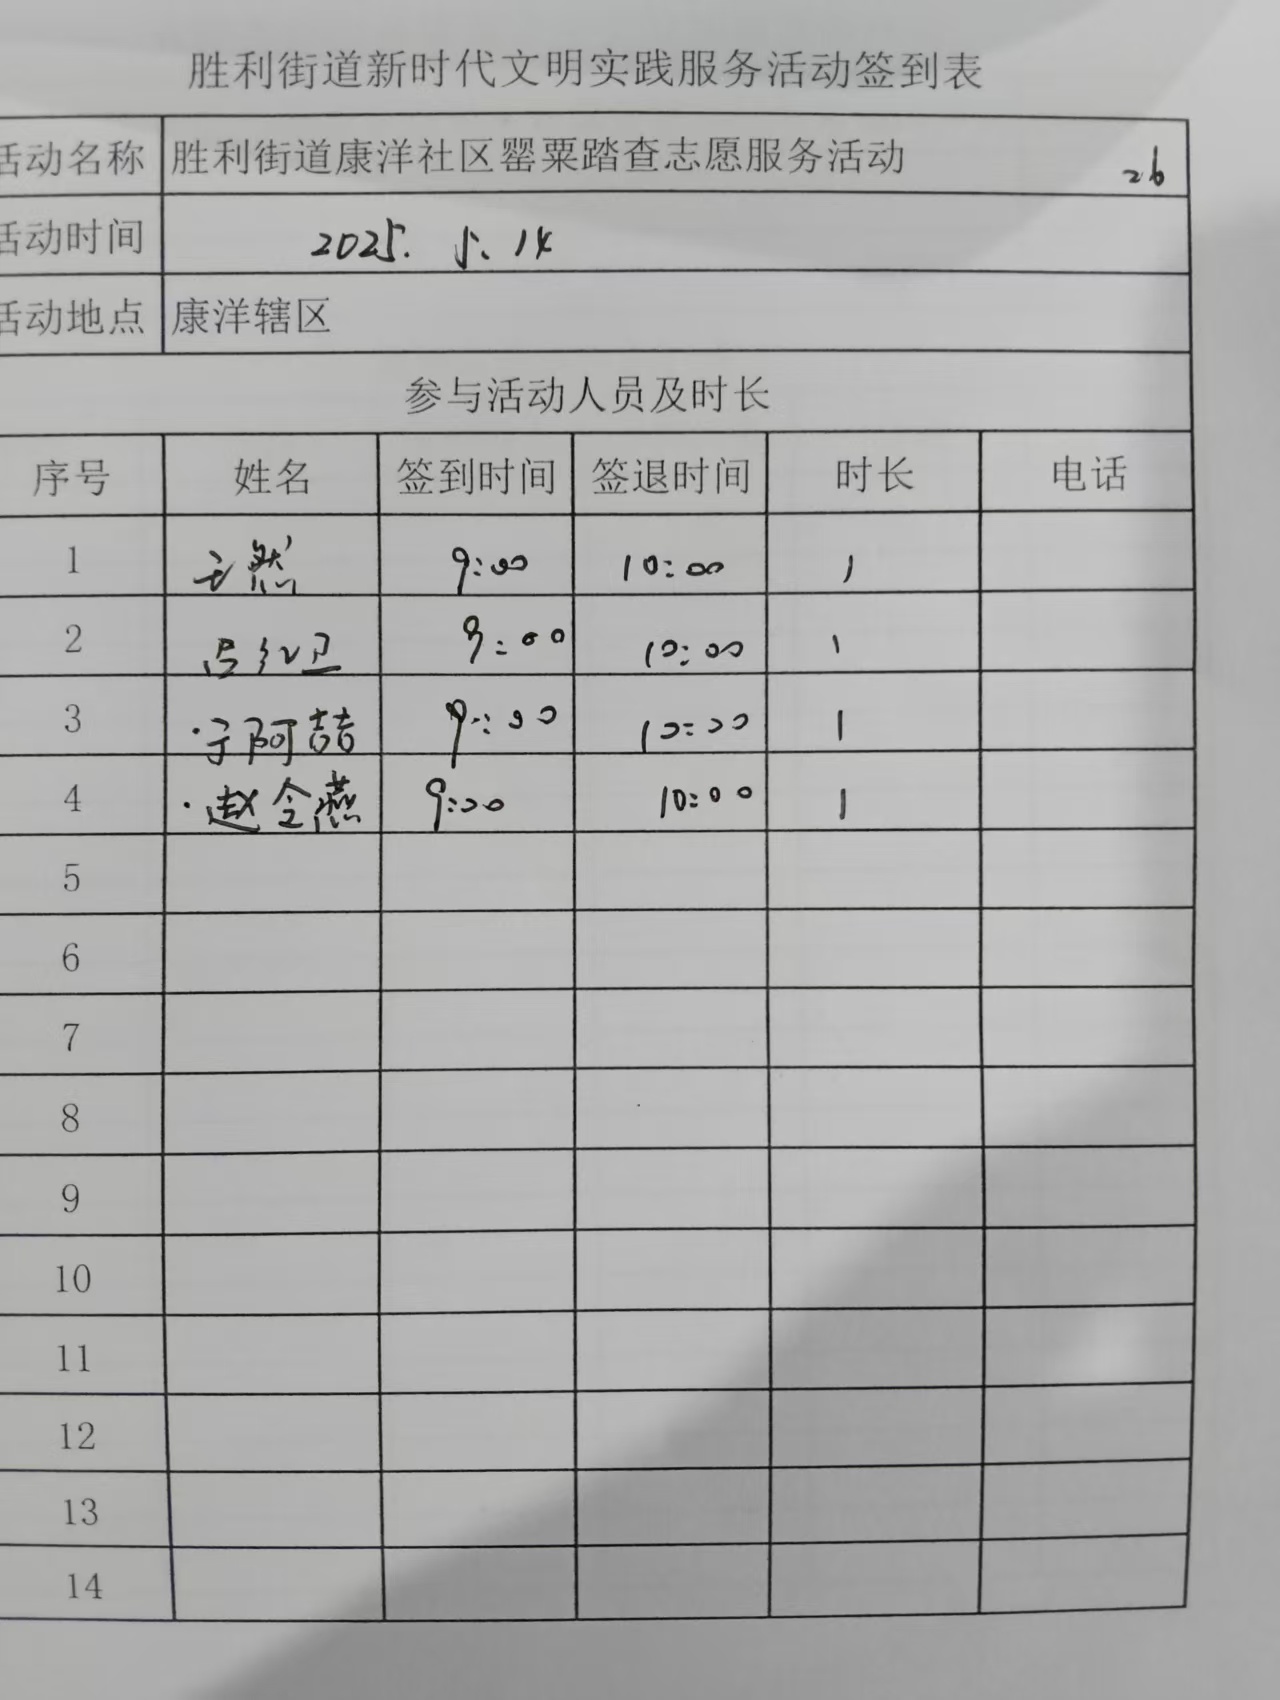 胜利街道新时代文明实践服务活动签到表
活动名称 胜利街道康洋社区罂粟踏查志愿服务活动 26
活动时间 2025. 5. 14
活动地点 康洋辖区
参与活动人员及时长
序号 姓名 签到时间 签退时间 时长 电话
1 王然 9:00 10:00 1
2 占红卫 9:00 10:00 1
3 于阿喆 9:00 10:00 1
4 赵令燕 9:00 10:00 1
5
6
7
8
9
10
11
12
13
14